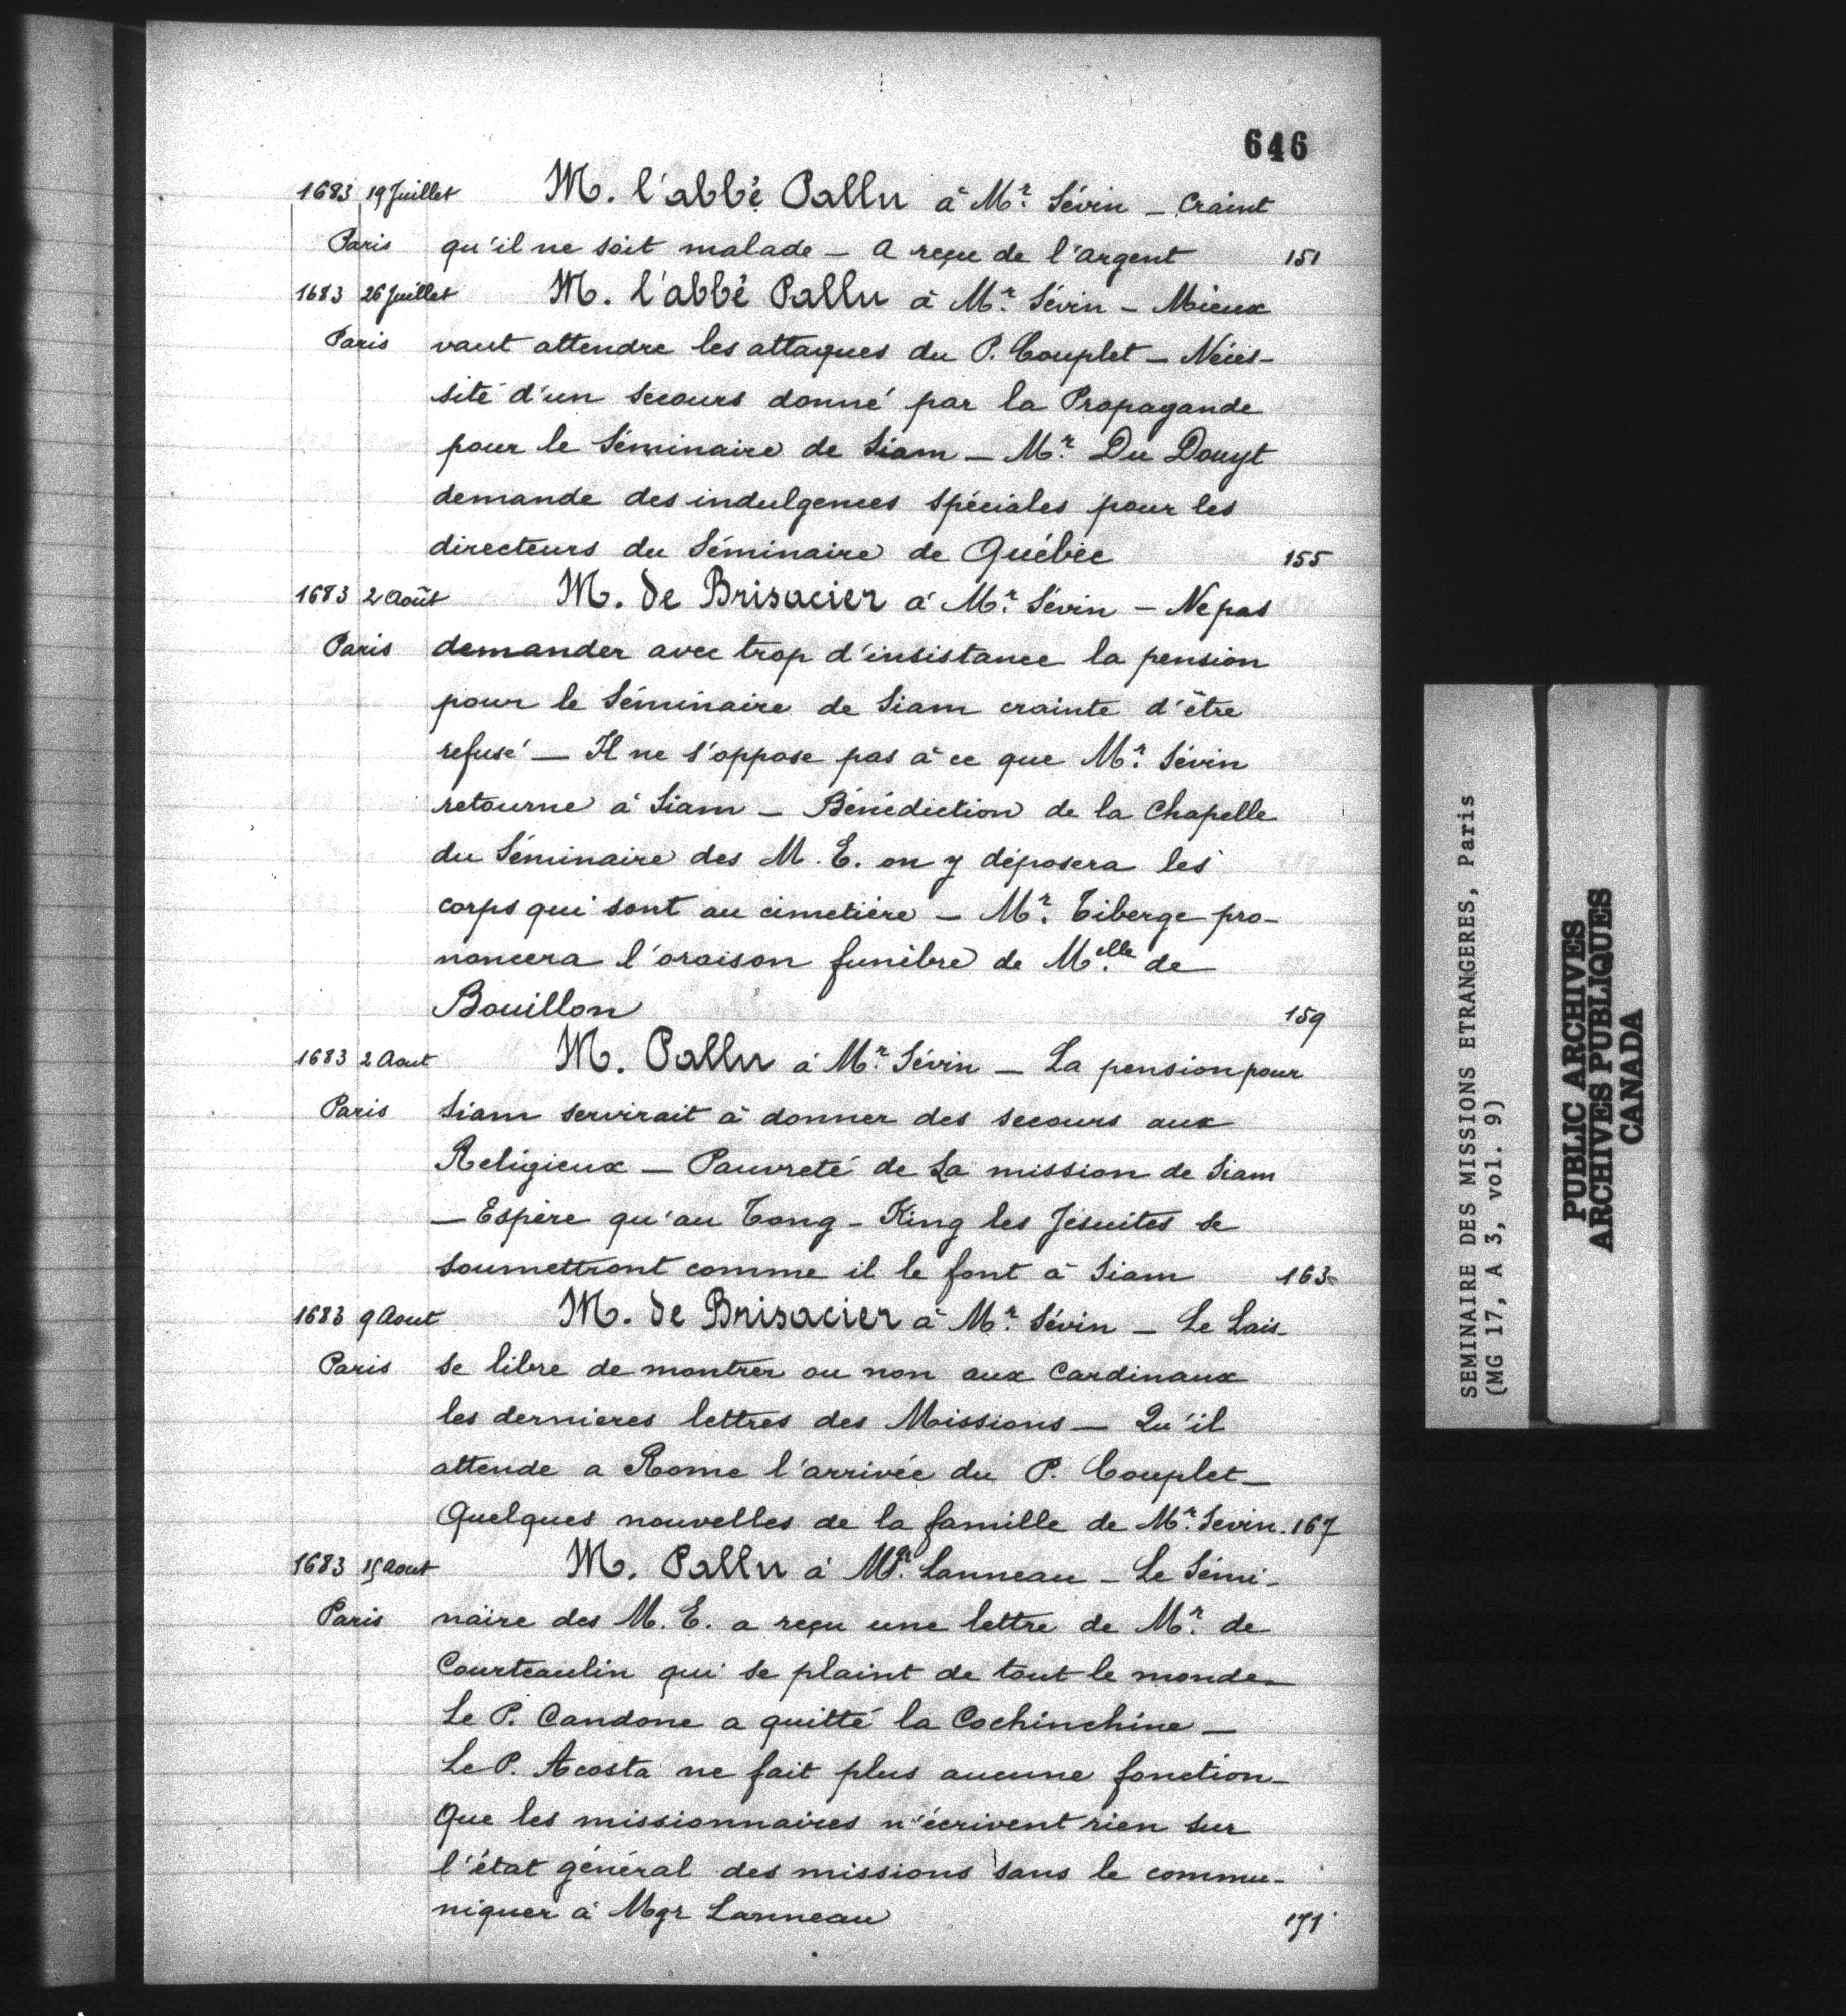 646
1683 19 Juillet M. l'abbé Pallu à Mr. Sévin — Craint
Paris qu'il ne soit malade — A reçu de l'argent 151
1683 26 Juillet M. l'abbé Pallu à Mr. Sévin — Mieux
Paris vaut attendre les attaques du P. Couplet — Néces-
sité d'un secours donné par la Propagande
pour le Séminaire de Siam — Mr. Du Douyt
demande des indulgences spéciales pour les
directeurs du Séminaire de Québec 155
1683 2 Août M. de Brisacier à Mr. Sévin — Ne pas
Paris demander avec trop d'insistance la pension
pour le Séminaire de Siam crainte d'être
refusé — Il ne s'oppose pas à ce que Mr. Sévin
retourne à Siam — Bénédiction de la Chapelle
du Séminaire des M. E. on y déposera les
corps qui sont au cimetière — Mr. Tiberge pro-
noncera l'oraison funèbre de Melle. de
Bouillon 159
1683 2 Aout M. Pallu à Mr. Sévin — La pension pour
Paris Siam servirait à donner des secours aux
Religieux — Pauvreté de La mission de Siam
— Espère qu'au Tong-King les Jésuites se
soumettront comme il le font à Siam 163
1683 9 Aout M. de Brisacier à Mr. Sévin — Le Lais-
Paris se libre de montrer ou non aux Cardinaux
les dernieres lettres des Missions — Qu'il
attende a Rome l'arrivée du P. Couplet —
Quelques nouvelles de la famille de Mr. Sevin. 167
1683 15 Aout M. Pallu à Mgr. Lanneau — Le Sémi-
Paris naire des M. E. a reçu une lettre de Mr. de
Courteaulin qui se plaint de tout le monde —
Le P. Candone a quitté la Cochinchine —
Le P. Acosta ne fait plus aucune fonction —
Que les missionnaires n'écrivent rien sur
l'état général des missions sans le commu-
niquer à Mgr Lanneau 171
SEMINAIRE DES MISSIONS ETRANGERES, Paris
(MG 17, A 3, vol. 9)
PUBLIC ARCHIVES
ARCHIVES PUBLIQUES
CANADA